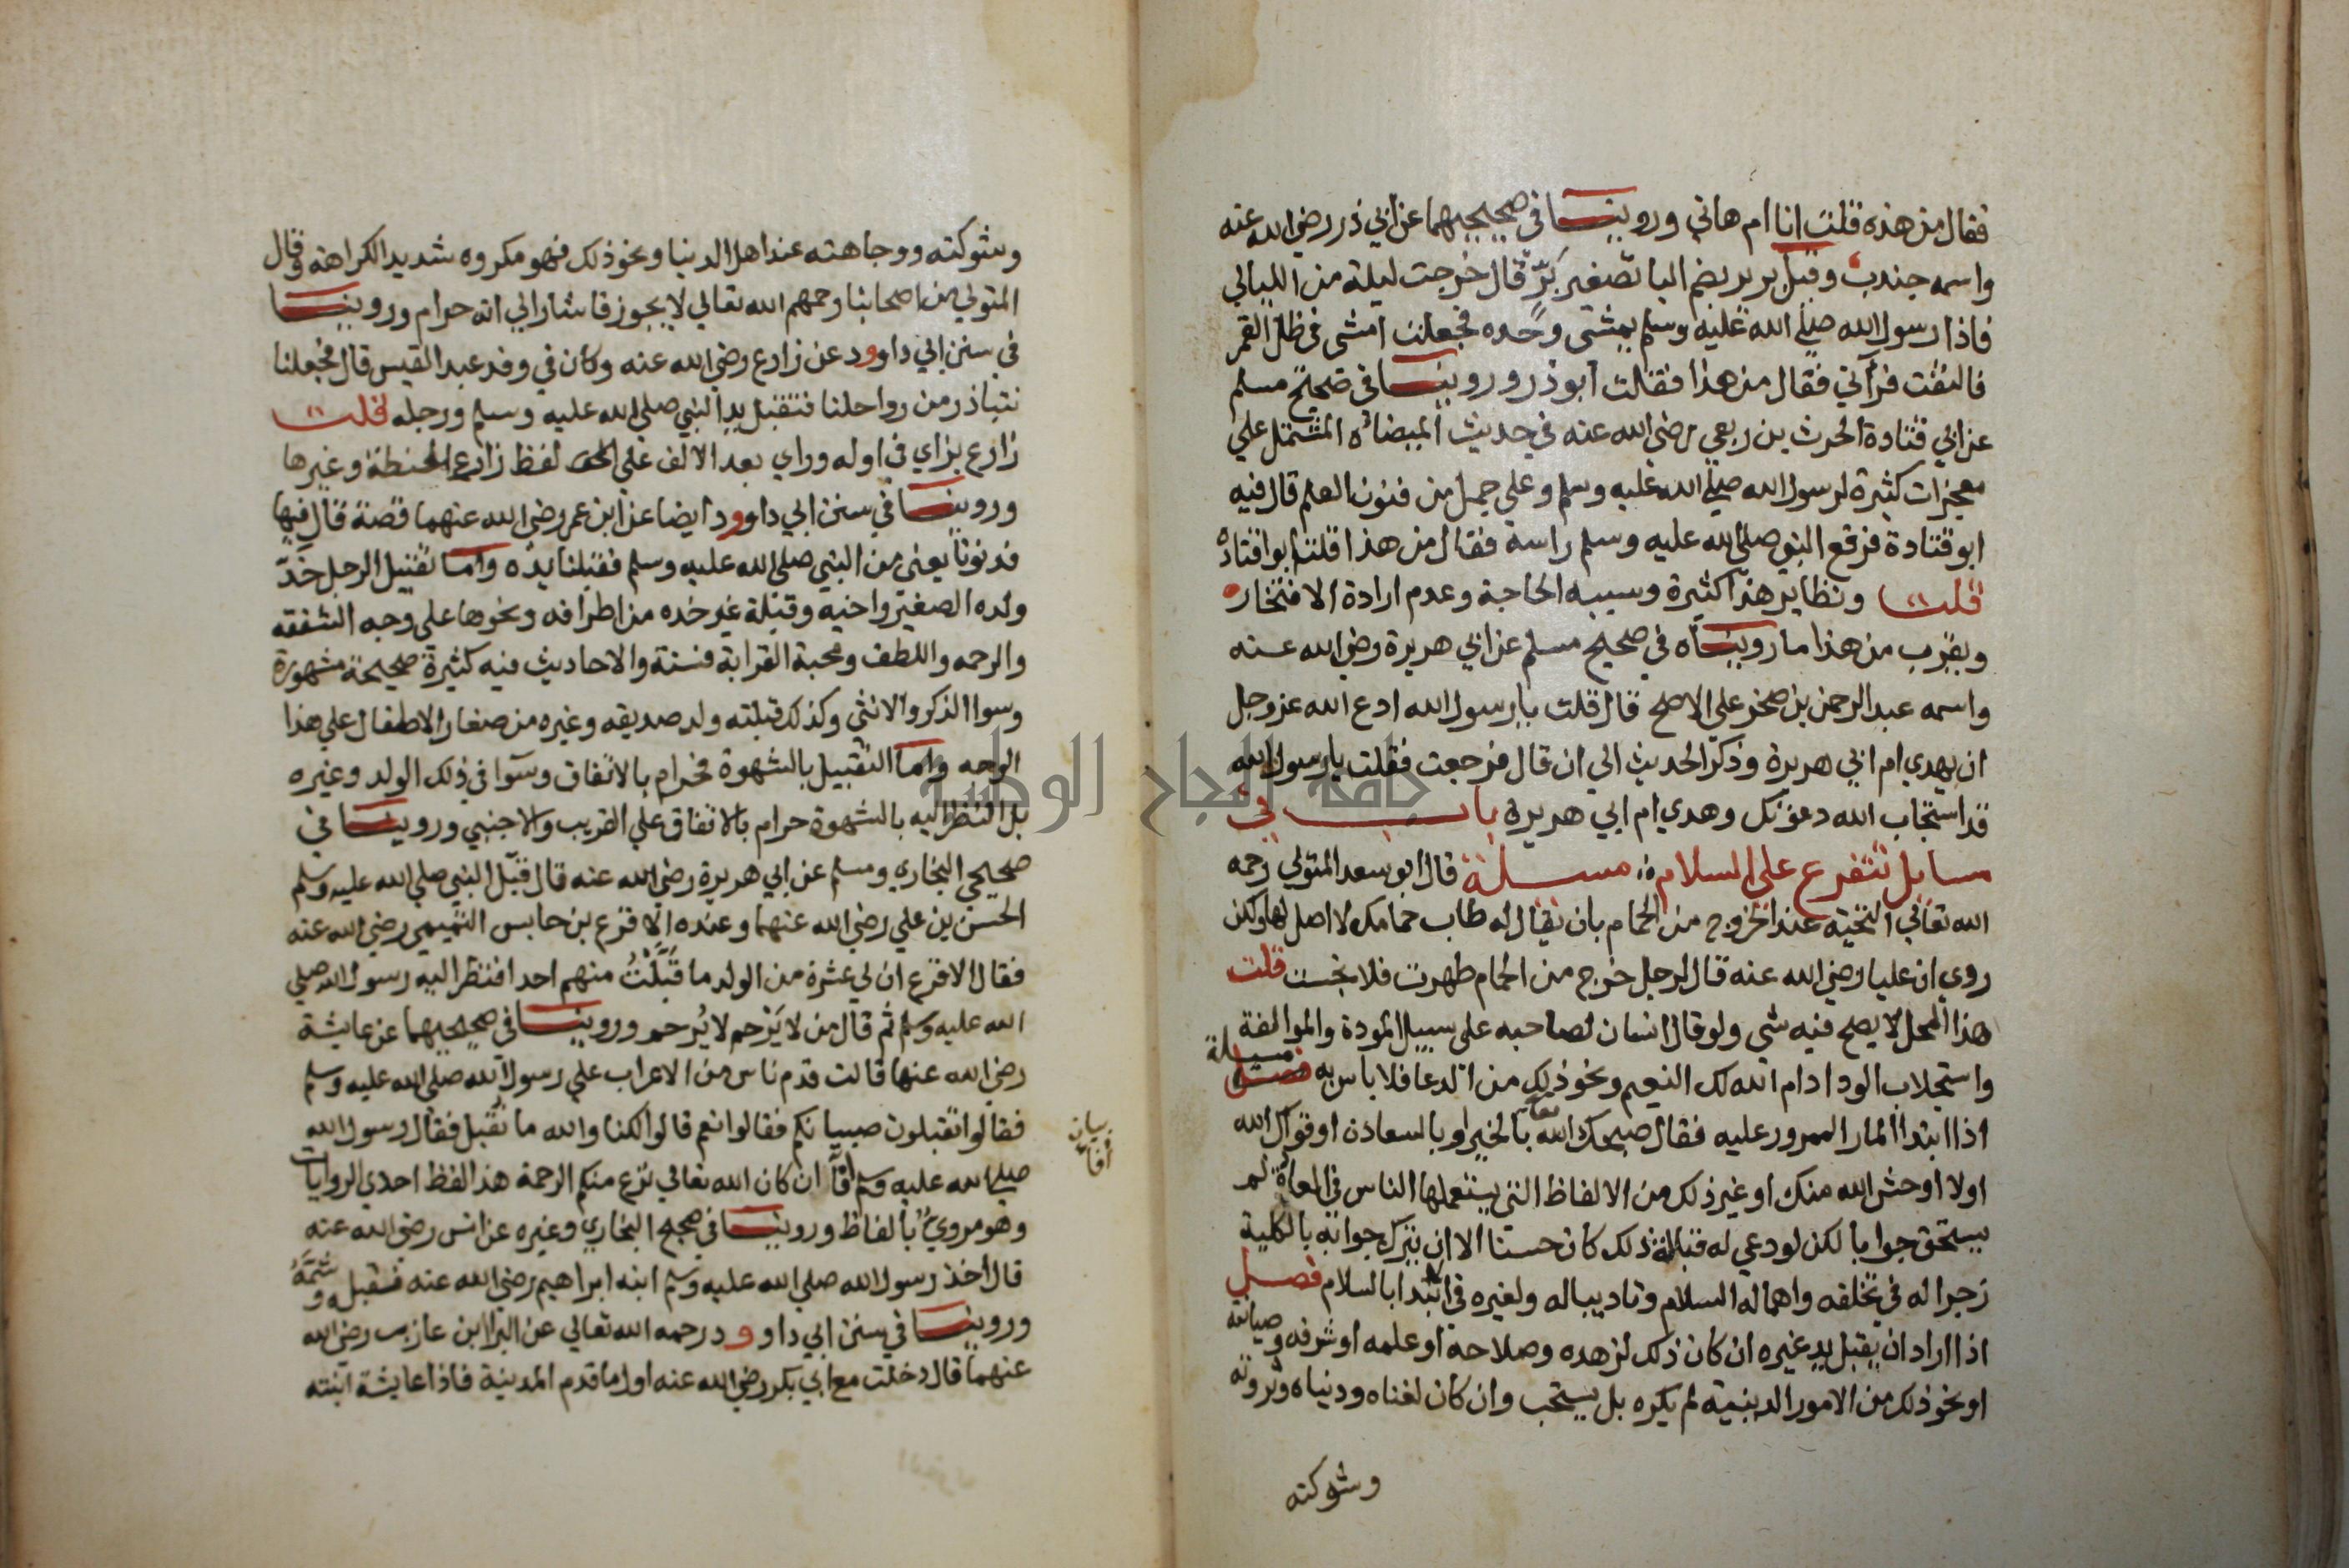 فقال من هذه قلت انا ام هاني وروينا في صحيحيهما عن ابي ذر رضي الله عنه
واسمه جندب وقيل برير بضم البا تصغير بَرّ قال خرجت ليلة من الليالي
فاذا رسول الله صلي الله عليه وسلم يمشي وحده فجعلت امشى في ظل القمر
فالتفت فرآني فقال من هذا فقلت ابو ذر وروينا في صحيح مسلم
عن ابي قتادة الحرث بن ربعي رضي الله عنه في حديث الميضاه المشتمل علي
معجزات كثيرة لرسول الله صلي الله عليه وسلم وعلي جمل من فنون العلم قال فيه
ابو قتادة فرفع النبي صلي الله عليه وسلم راسه فقال من هذا قلت ابو قتادة
قلت ونظاير هذا كثيرة وسببه الحاجة وعدم ارادة الافتخار
ويقرب من هذا ما رويناه في صحيح مسلم عن ابي هريرة رضي الله عنه
واسمه عبد الرحمن بن صخر علي الاصح قال قلت يا رسول الله ادع الله عز وجل
ان يهدي ام ابي هريرة وذكر الحديث الي ان قال فرجعت فقلت يا رسول الله
قد استجاب الله دعوتك وهدي ام ابي هريرة باب في
مسايل تتفرع على السلام مسئلة قال ابو سعد المتولي رحمه
الله تعالي التحية عند الخروج من الحمام بان يقال له طاب حمامك لا اصل لها ولكن
روي ان عليا رضي الله عنه قال لرجل خرج من الحمام طهرت فلا نجست قلت
هذا المحل لا يصح فيه شي ولو قال انسان لصاحبه على سبيل المودة والموالفة
واستجلاب الود ادام الله لك النعيم ونحو ذلك من الدعا فلا باس به مسيلة
اذا ابتدا المار الممرور عليه فقال صبحك الله تعالى بالخير او بالسعادة او قواك الله
اولا اوحش الله منك او غير ذلك من الالفاظ التي يستعملها الناس في العادة لم
يستحق جوابا لكن لو دعي له قبالة ذلك كان حسنا الا ان يترك جوابه بالكلية
زجرا له في تخلفه واهماله السلام وتاديبا له ولغيره في ابتدا بالسلام فصل
اذا اراد ان يقبل يد غيره ان كان ذلك لزهده وصلاحه او علمه او شرفه وصيانته
او نحو ذلك من الامور الدينية لم يكره بل يستحب وان كان لغناه ودنياه وثروته
وشوكته
وشوكته ووجاهته عند اهل الدنيا ونحو ذلك فهو مكروه شديد الكراهة وقال
المتولي من اصحابنا رحمهم الله تعالي لا يجوز فاشار الي انه حرام وروينا
في سنن ابي داوود عن زارع رضي الله عنه وكان في وفد عبد القيس قال فجعلنا
نتباذر من رواحلنا فنقبل يد النبي صلي الله عليه وسلم ورجله قلت
زارع بزاي في اوله وراي بعد الالف علي لفظ زارع الحنطة وغيرها
وروينا في سنن ابي داوود ايضا عن ابن عمر رضي الله عنهما قصة قال فيها
فدنونا يعني من النبي صلي الله عليه وسلم فقبلنا يده واما تقبيل الرجل خدّ
ولده الصغير واخيه وقبلة غير خده من اطرافه ونحوها على وجه الشفقه
والرحمه واللطف ومحبة القرابة فسنة والاحاديث فيه كثيرة صحيحة مشهورة
وسوا الذكر والانثي وكذلك قبلته ولد صديقه وغيره من صغار الاطفال علي هذا
الوجه واما التقبيل بالشهوة فحرام بالاتفاق وسوا في ذلك الولد وغيره
بل النظر اليه بالشهوة حرام بالاتفاق علي القريب والاجنبي وروينا في
صحيحي البخاري ومسلم عن ابي هريرة رضي الله عنه قال قبّل النبي صلي الله عليه وسلم
الحسن بن علي رضي الله عنهما وعنده الاقرع بن حابس التميمي رضي الله عنه
فقال الاقرع ان لي عشرة من الولد ما قَبَّلْتُ منهم احدا فنظر اليه رسول الله صلي
الله عليه وسلم ثم قال من لا يَرْحم لا يُرحم وروينا في صحيحيهما عن عايشة
رضي الله عنها قالت قدم ناس من الاعراب علي رسول الله صلي الله عليه وسلم
فقالوا تقبلون صبيانكم فقالوا نعم قالوا لكنا والله ما نُقبل فقال رسول الله
صلي الله عليه وسلم ان كان الله تعالي نزع منكم الرحمة هذا لفظ احدي الروايات
وهو مروي بالفاظ وروينا في صحيح البخاري وغيره عن انس رضي الله عنه
قال اخذ رسول الله صلي الله عليه وسلم ابنه ابراهيم رضي الله عنه فقبله وشمَّهُ
وروينا في سنن ابي داوود رحمه الله تعالي عن البرا ابن عازب رضي الله
عنهما قال دخلت مع ابي بكر رضي الله عنه اول ما قدم المدينة فاذا عايشة ابنته
جامعة النجاح الوطنية